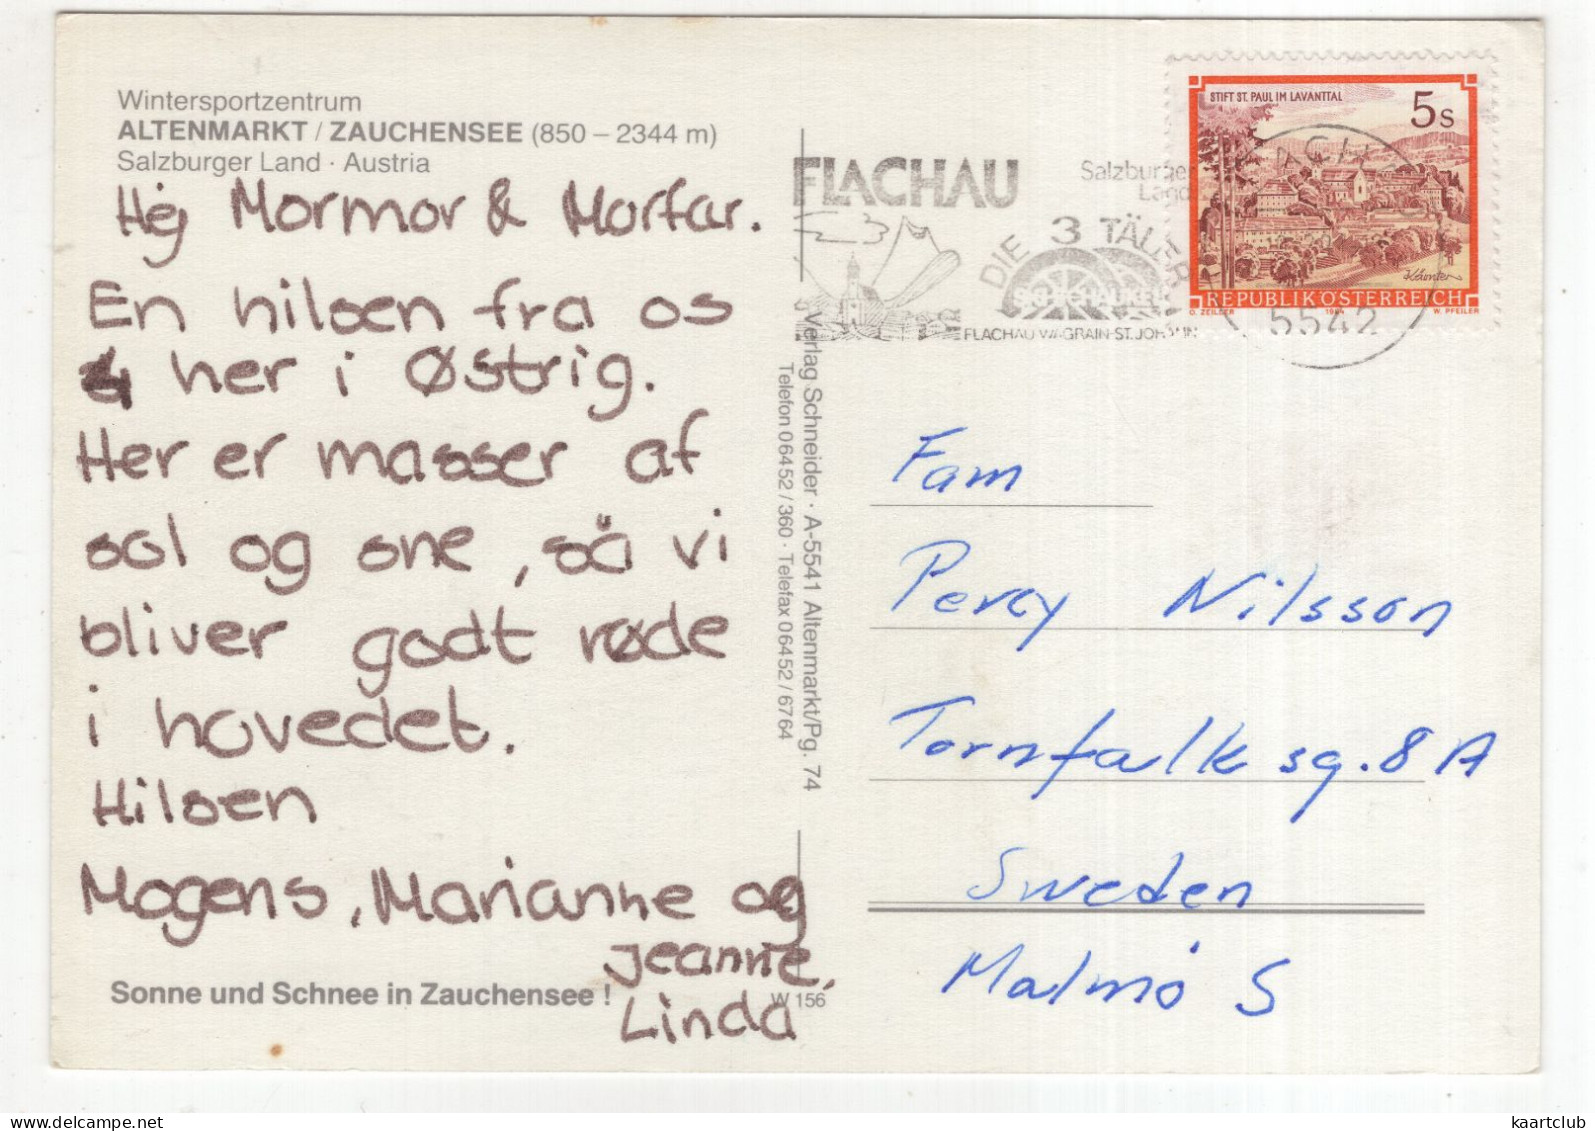 Wintersportzentrum
ALTENMARKT / ZAUCHENSEE (850 – 2344 m)
Salzburger Land · Austria
Hej Mormor & Morfar.
En hilsen fra os
her i Østrig.
Her er masser af
sol og sne, så vi
bliver godt røde
i hovedet.
Hilsen
Mogens, Marianne og
Jeanne,
Linda
Sonne und Schnee in Zauchensee !
W 156
Verlag Schneider · A-5541 Altenmarkt/Pg. 74
Telefon 06452/360 · Telefax 06452/6764
FLACHAU
Salzburger
Land
DIE 3 TÄLER
SKISCHAUKEL
FLACHAU-WAGRAIN-ST.JOHANN
5542
STIFT ST. PAUL IM LAVANTTAL
5s
REPUBLIK ÖSTERREICH
O. ZEILLER 1984 W. PFEILER
Fam
Percy Nilsson
Tornfalksg. 8 A
Sweden
Malmö S
kaartclub